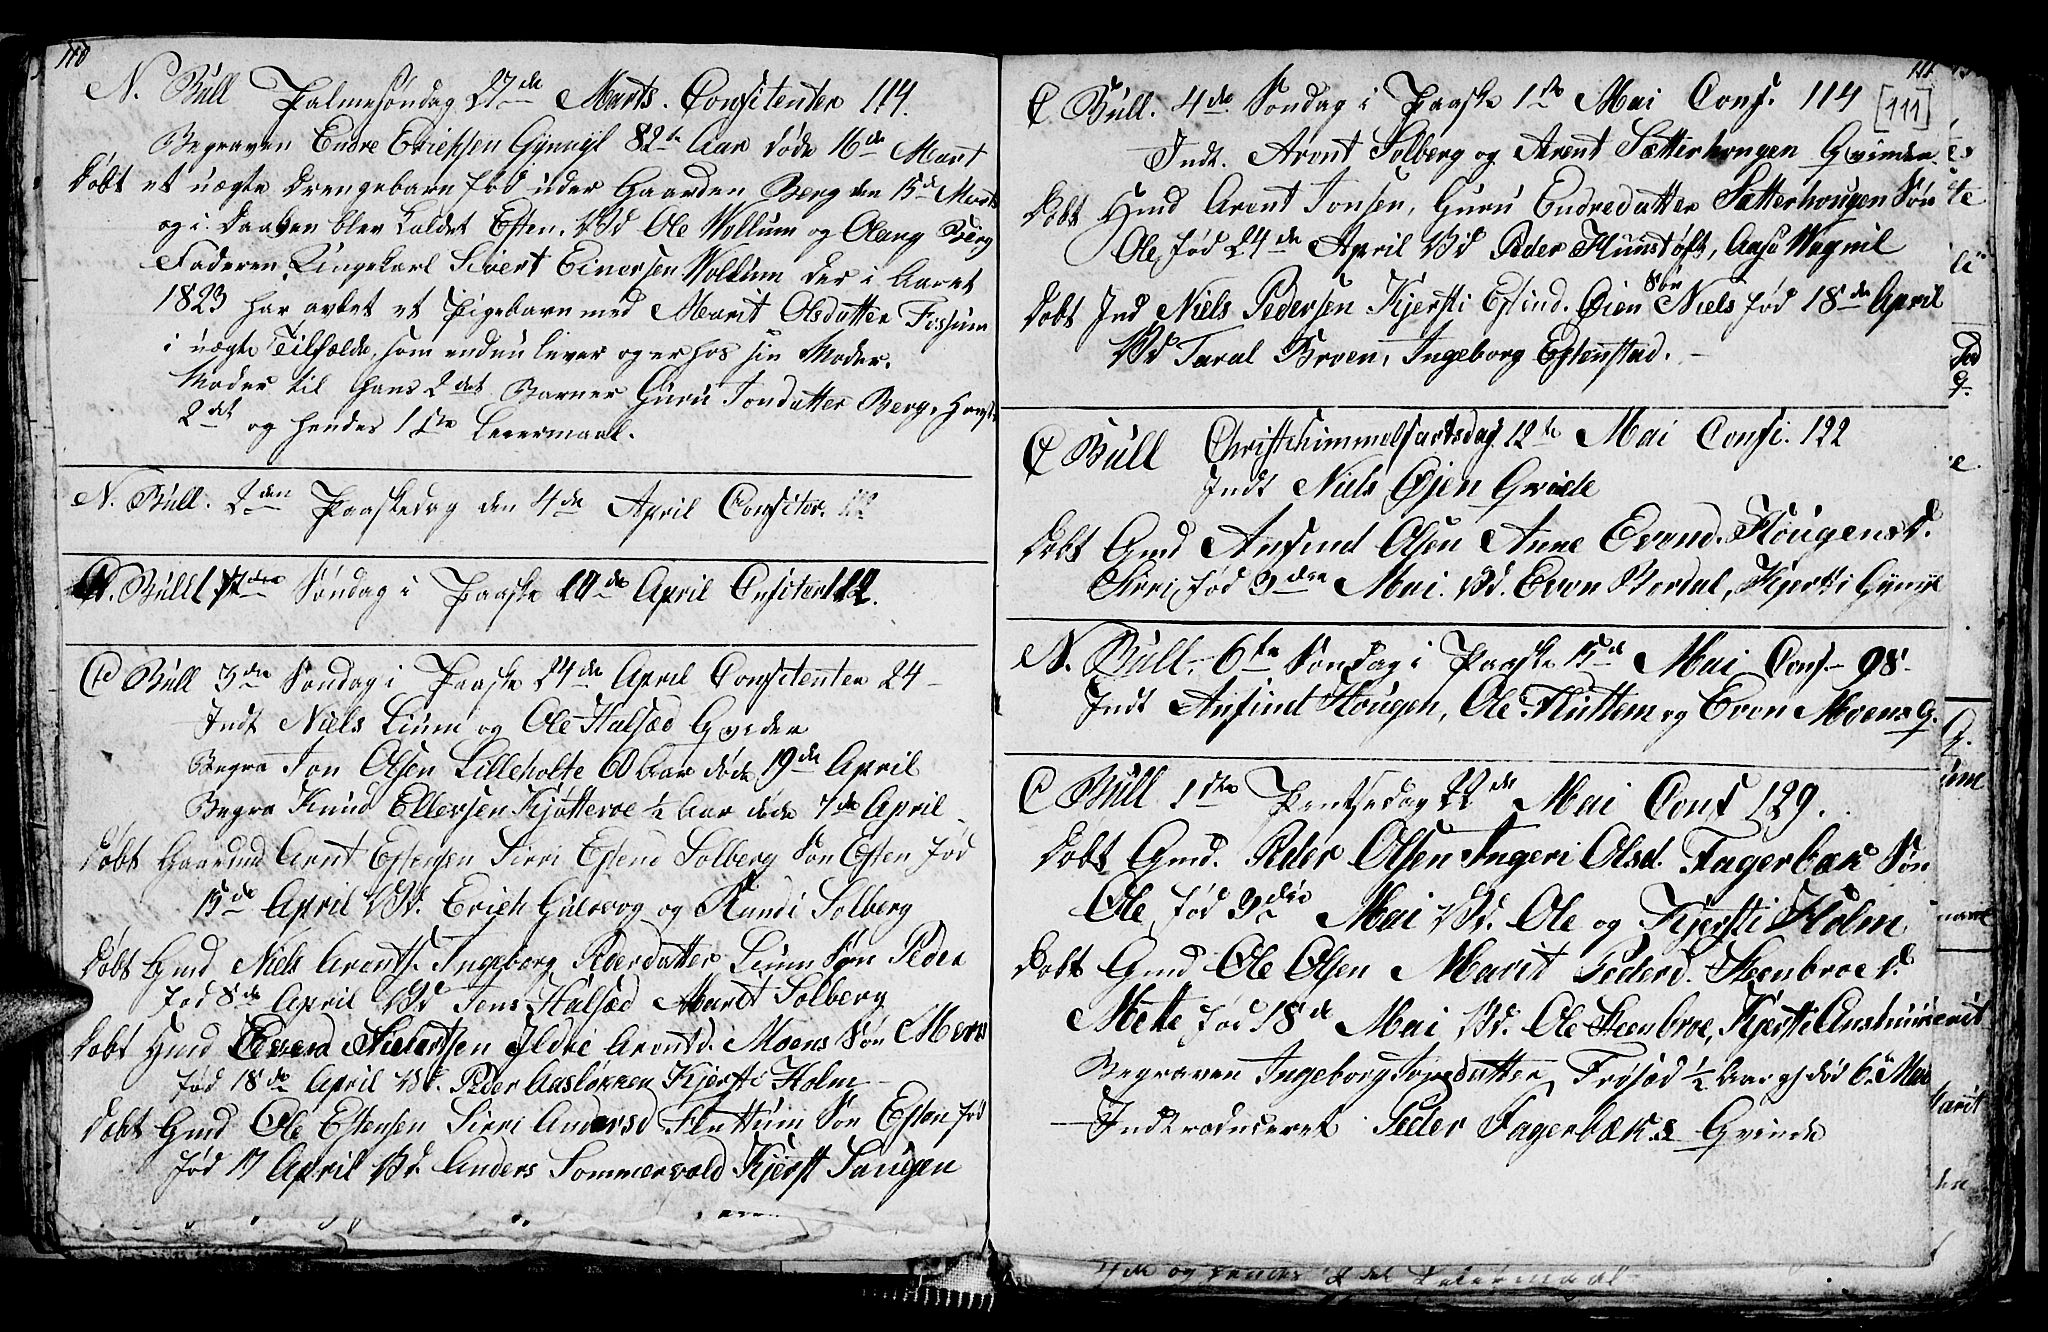 110
N. Bull Palmesøndag 27de Marts. Confitenter 114.
Begraven Endre Erichsen 82 Aar døde 16de Mart
Døbt et uægte Drengebarn fød uder Gaarden Berg den 15de Marts
og i Daaben blev kaldet Esten. Vd Ole Wollum og Berg
Faderen Ungekarl Sivert Einersen Wollum der i Aaret
1823 har avlet et Pigebarn med Marit Olsdatter Fossum
i uægte Tilfælde, som endnu lever og er hos sin Moder.
Moder til hans 2det Barn er Guru Jonsdatter Berg, hans
2det og hendes 1ste Leiermaal.
N. Bull. 2den Paaskedag den 4de April Confiter.
N. Bull Søndag i Paaske April Confitent 112.
C Bull 3de Søndag i Paaske 24de April Confitenter 24
Indt Niels Lium og Ole Halsæd Qvinder
Begra Jon Olsen Lilleholte 60 Aar døde 19de April
Begra Knud Ellevsen Kjøtteroe ½ Aar døde 7de April
Døbt Gaardmd Arnt Estensen Sirri Estend Solberg Søn Esten fød
15de April Vd. Erich Gulvog og Randi Solberg
Døbt Gmd Niels Arents. Ingeborg Pedersdatter Lium Søn Peder
fød 8de April Vd Jens Halsæd Marit Solberg
Døbt Hmd Evend Sivertsen Ildri Arentd. Moens Søn
fød 18de April Vd. Peder Aasløkken Kjersti Holm
Døbt Gmd Ole Estensen Sirri Andersd Fluttum Søn Esten fød
fød 17 April Vd. Anders Sommervold Kjerst Haugen
111
C Bull. 4de Søndag i Paaske 1ste Mai Conf. 114 [111]
Indt. Arent Solberg og Arent Sætterhougen Qvinder
Døbt Hmd Arent Jonsen, Guru Endredatter Sætterhougen Søn
Ole fød 24de April Vd Peder Aase Wognil
Døbt Ind Niels Pedersen Kjersti Estend. Øien Søn Niels fød 18de April
Vd Taral Broen, Ingeborg Estenstad.
C Bull Christihimmelfartsdag 12te Mai Confi. 122
Indt Niels Øjen Qvinde
Døbt Gmd Anfind Olsen Anne Evend. Hougen D.
Sirri, fød 3den Mai. Vd. Even Bordal, Kjersti
N. Bull. 6te Søndag i Paaske 15de Mai Conf. 98
Indt Anfind Hougen, Ole Fluttem og Even Moens Q.
C Bull 1ste Pentsedag 22de Mai Conf 129.
Døbt Gmd. Peder Olsen Ingeri Olsd. Fagerbæk Søn
Ole, fød 3die Mai Vd. Ole og Kjersti Holm
Døbt Gmd Ole Olsen Marit Pederd. Steenbroe D.
Mette fød 18de Mai Vd. Ole Steenbroe, Kjersti
Begraven Ingeborg Jonsdatter Frøsæd ½ Aar gl død 6te Mai
Indtroduceret Peder Fagerbæks Qvinde
4de og hendes 2det Leiermaal